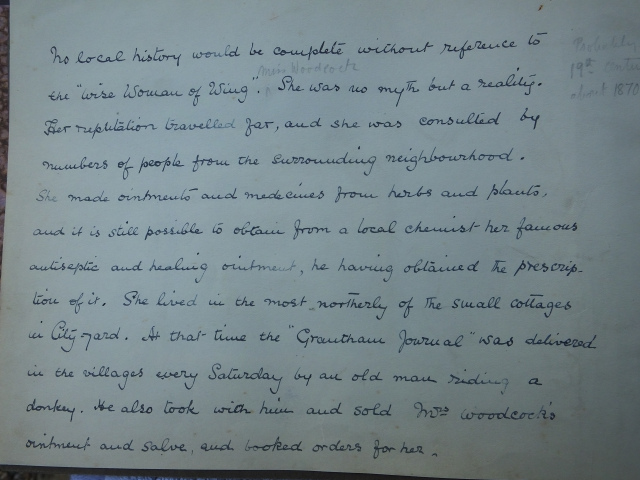 No local history would be complete without reference to
the "wise Woman of Wing". She was no myth but a reality.
Mrs Woodcock
19th
about 1870
Her reputation travelled far, and she was consulted by
numbers of people from the surrounding neighbourhood.
She made ointments and medecines from herbs and plants,
and it is still possible to obtain from a local chemist her famous
antiseptic and healing ointment, he having obtained the prescrip-
tion of it. She lived in the most northerly of the small cottages
in City-yard. At that time the "Grantham Journal" was delivered
in the villages every Saturday by an old man riding a
donkey. He also took with him and sold Mrs Woodcock's
ointment and salve, and booked orders for her.